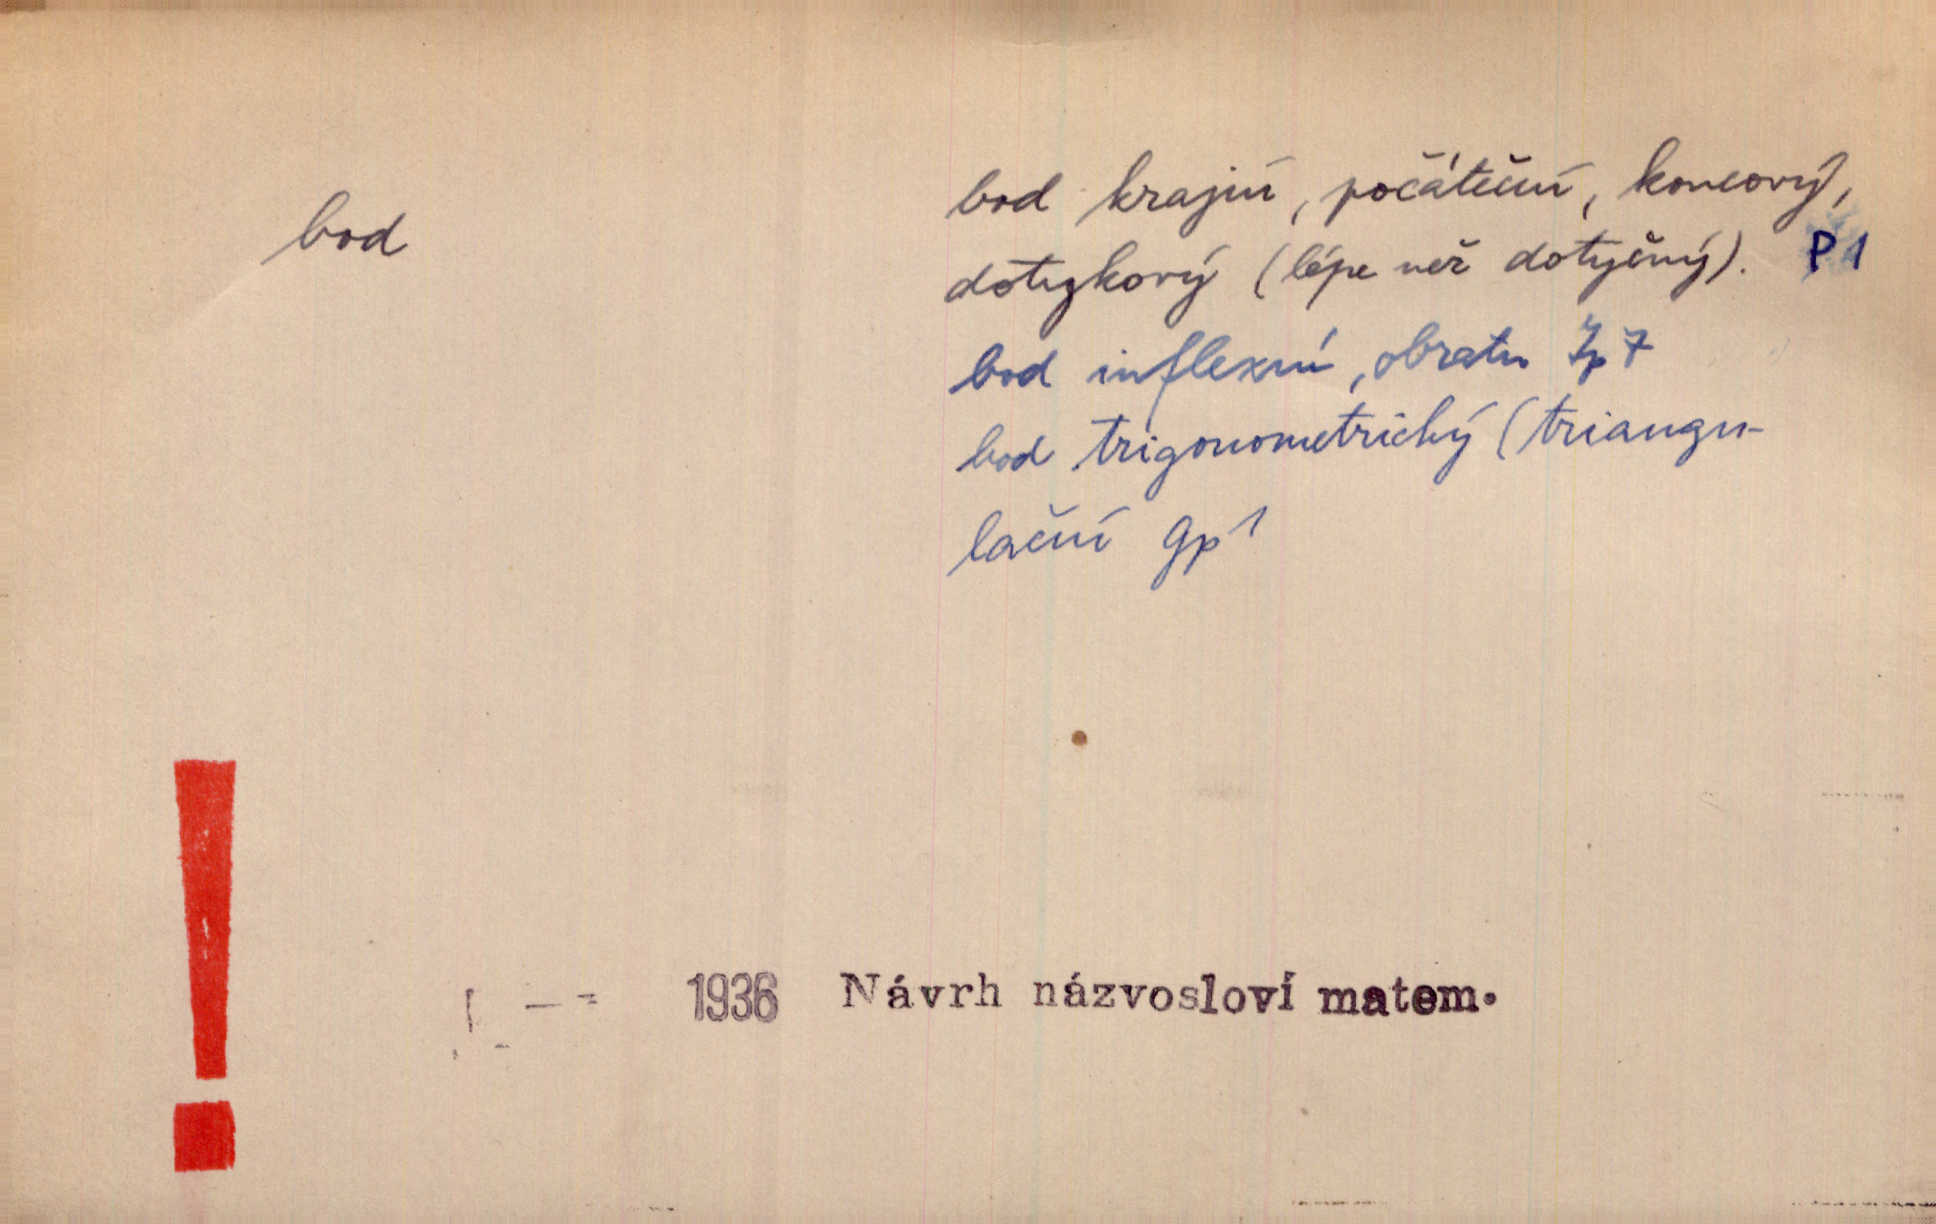 bod
bod krajní, počáteční, koncový,
dotykový (lépe než dotyčný). P1
bod inflexní, obratu 7
bod trigonometrický (triangu-
lační gp 1
1936 Návrh názvosloví matem.
!